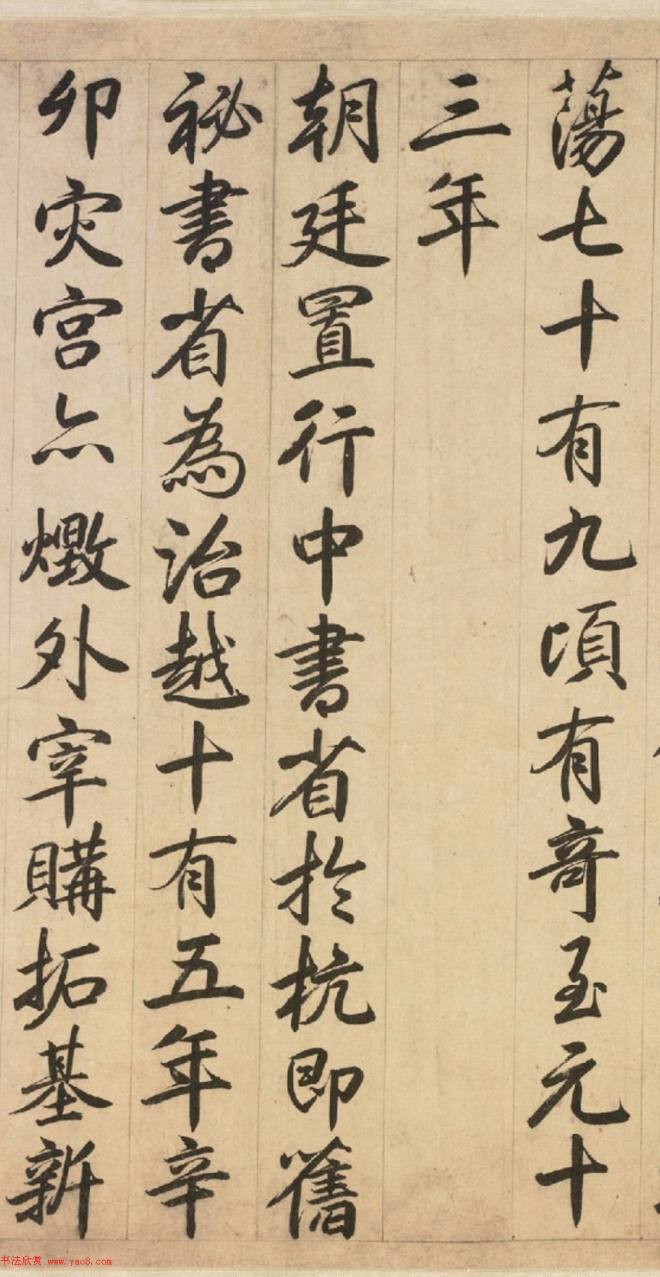 蕩七十有九頃有奇至元十
三年
朝廷置行中書省於杭即舊
祕書省為治越十有五年辛
卯灾宫亦燬外宰購拓基新
书法欣赏 www.yac8.com